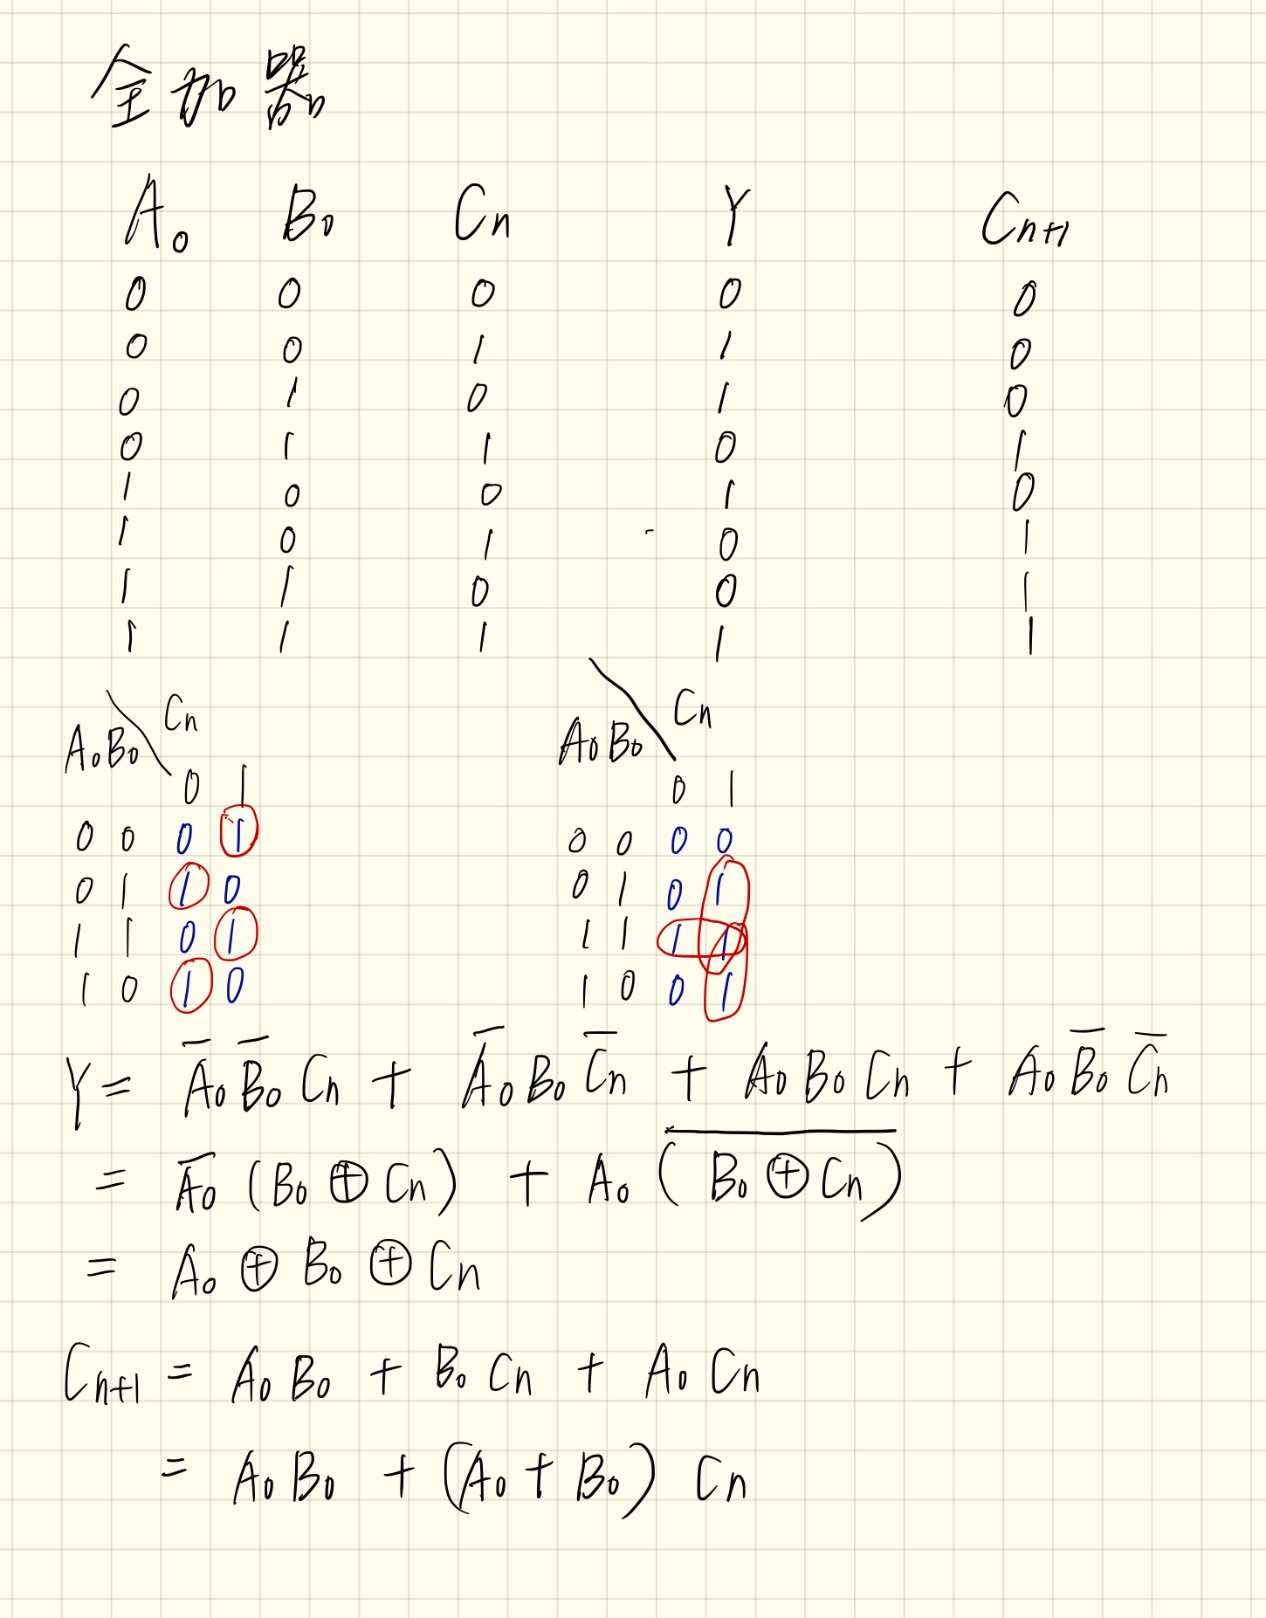 全加器
A₀ B₀ Cn Y Cn+1
0 0 0 0 0
0 0 1 1 0
0 1 0 1 0
0 1 1 0 1
1 0 0 1 0
1 0 1 0 1
1 1 0 0 1
1 1 1 1 1
A₀B₀ \ Cn
0 1
0 0 0 1
0 1 1 0
1 1 0 1
1 0 1 0
A₀B₀ \ Cn
0 1
0 0 0 0
0 1 0 1
1 1 1 1
1 0 0 1
Y = A̅₀ B̅₀ Cn + A̅₀ B₀ C̅n + A₀ B₀ Cn + A₀ B̅₀ C̅n
= A̅₀ (B₀ ⊕ Cn) + A₀ \overline{(B₀ ⊕ Cn)}
= A₀ ⊕ B₀ ⊕ Cn
Cn+1 = A₀ B₀ + B₀ Cn + A₀ Cn
= A₀ B₀ + (A₀ + B₀) Cn